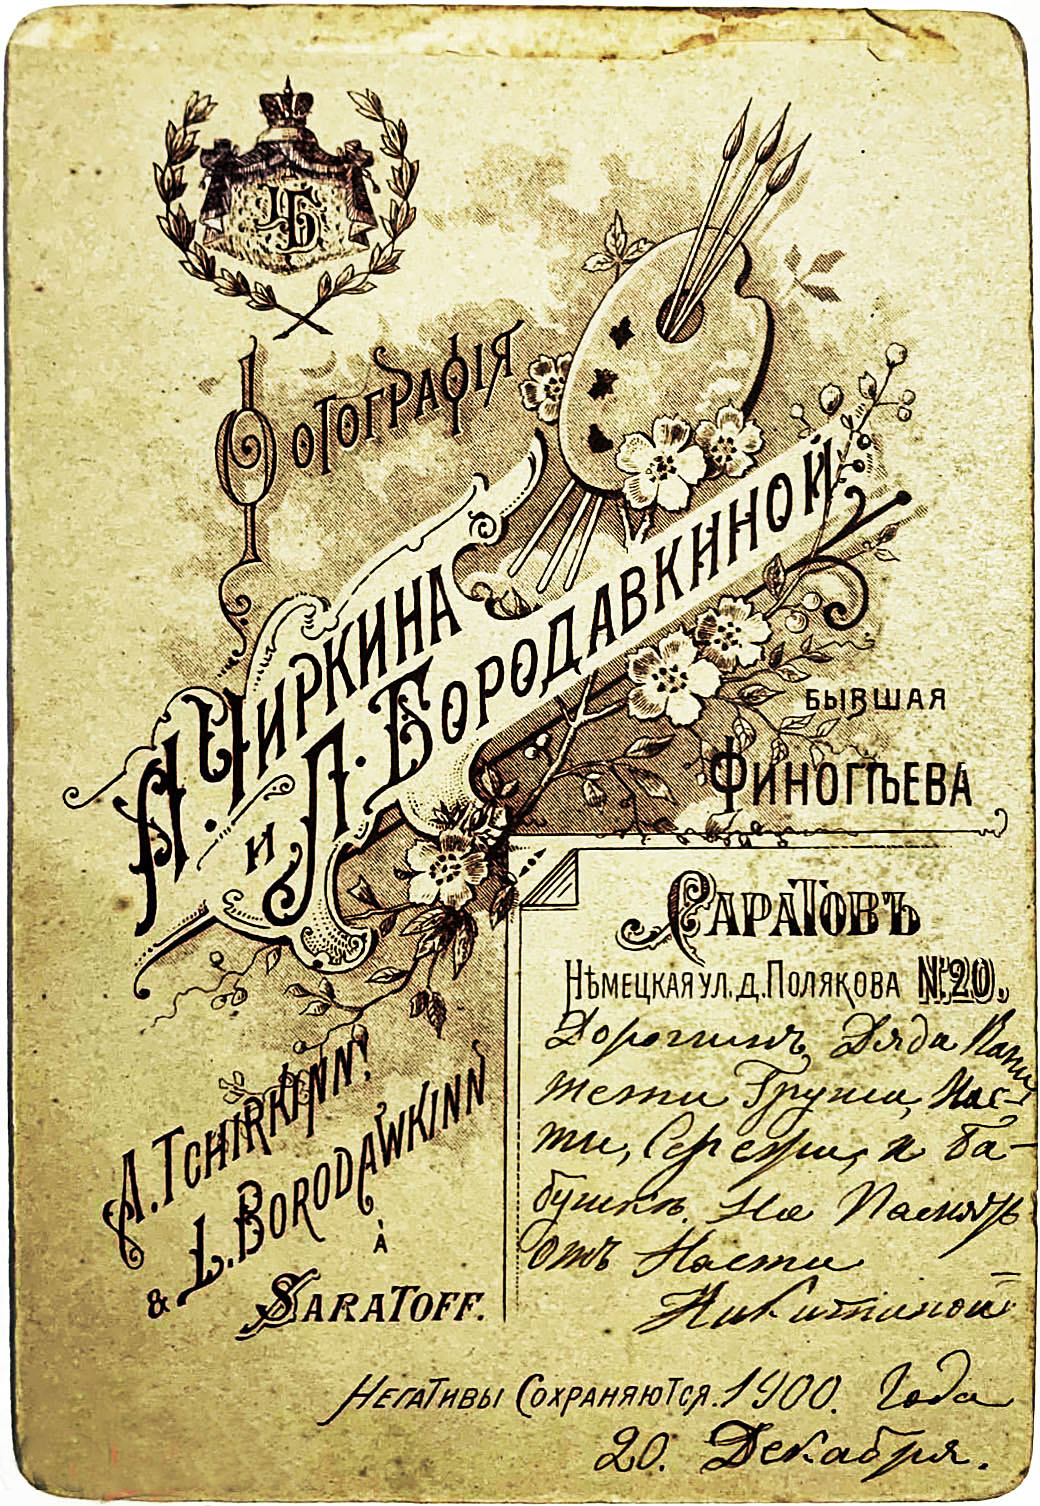 ЧБ
Фотографія
А. Чиркина
и Л. Бородавкиной
бывшая
Финогѣева
Саратовъ
Нѣмецкая ул. д. Полякова №20.
Дорогимъ Дяда
тети Груши, Нас-
ти, Сережи, и ба-
бушкѣ. На Память
отъ Насти
Никитиной
A. Tchirkinn!
& L. Borodawkinn
à
Saratoff.
Негативы Сохраняются. 1900. Года
20. Декабря.